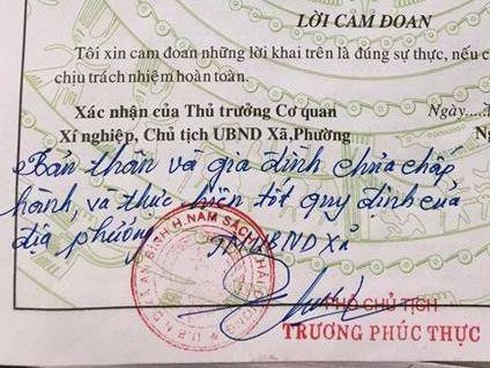 LỜI CẢM ĐOAN
Tôi xin cam đoan những lời khai trên là đúng sự thực, nếu
chịu trách nhiệm hoàn toàn.
Xác nhận của Thủ trưởng Cơ quan
Ngày....
Xí nghiệp, Chủ tịch UBND Xã,Phường
Bản thân và gia đình chưa chấp
hành, và thực hiện tốt quy định của
địa phương
TM UBND Xã
U.B.N.D XÃ AN BÌNH H.NAM SÁCH
PHÓ CHỦ TỊCH
TRƯƠNG PHÚC THỰC